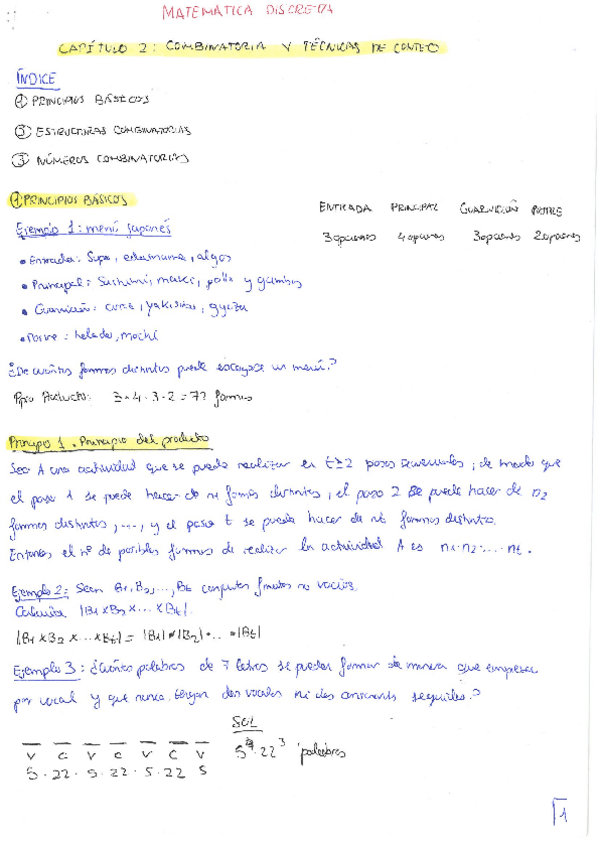 MATEMÁTICA DISCRETA
CAPÍTULO 2: COMBINATORIA Y TÉCNICAS DE CONTEO
ÍNDICE
① PRINCIPIOS BÁSICOS
② ESTRUCTURAS COMBINATORIAS
③ NÚMEROS COMBINATORIOS
① PRINCIPIOS BÁSICOS
ENTRADA PRINCIPAL GUARNICIÓN POSTRE
3 opciones 4 opciones 3 opciones 2 opciones
Ejemplo 1: menú japonés
• Entrada: Sopa, edamame, algas
• Principal: Sashimi, maki, pollo y gambas
• Guarnición: arroz, yakisoba, gyoza
• Postre: helado, mochi
¿De cuántas formas distintas puede escogerse un menú?
Ppio Producto: 3·4·3·2 = 72 formas
Principio 1. Principio del producto
Sea A una actividad que se puede realizar en t≥2 pasos, de modo que
el paso 1 se puede hacer de n₁ formas distintas, el paso 2 se puede hacer de n₂
formas distintas, ..., y el paso t se puede hacer de nt formas distintas.
Entonces el nº de posibles formas de realizar la actividad A es n₁·n₂·...·nt.
Ejemplo 2: Sean B₁, B₂, ..., Bt conjuntos finitos no vacíos.
Calcular |B₁ x B₂ x ... x Bt|.
|B₁ x B₂ x ... x Bt| = |B₁| * |B₂| · ... * |Bt|
Ejemplo 3: ¿Cuántas palabras de 7 letras se pueden formar de manera que empiecen
por vocal y que nunca tengan dos vocales ni dos consonantes seguidas?
SOL
V C V C V C V
5⁴·22³ palabras
5 · 22 · 5 · 22 · 5 · 22 5
1